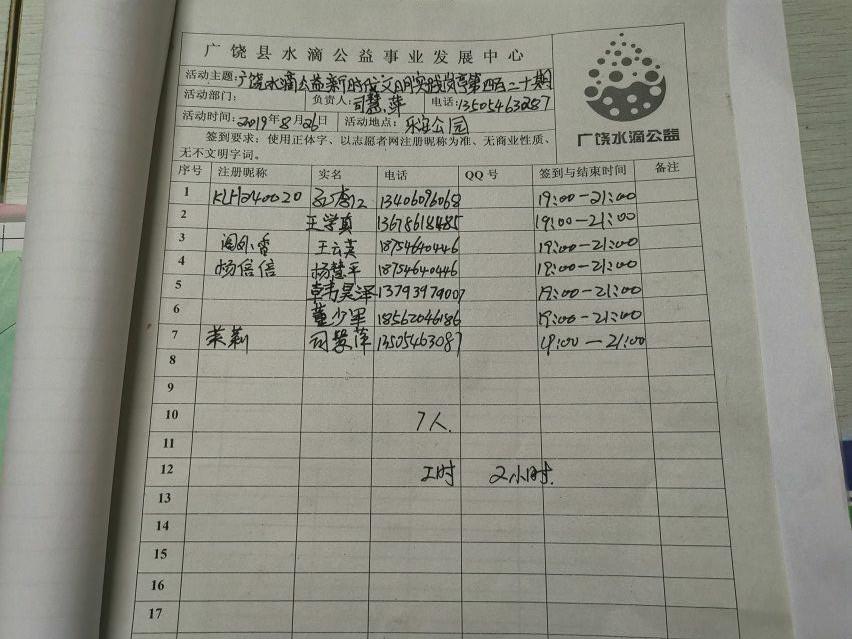 广饶县水滴公益事业发展中心
活动主题:广饶水滴公益新时代文明实践岗亭第四百二十期
活动部门: 负责人:司慧萍 电话:13505463287
活动时间:2019年8月26日 活动地点: 乐安公园
签到要求:使用正体字、以志愿者网注册昵称为准、无商业性质、
无不文明字词。
广饶水滴公益
序号 注册昵称 实名 电话 QQ号 签到与结束时间 备注
1 13406096068 19:00-21:00
2 王学真 13678618485 19:00-21:00
3 阁外香 王云英 18754640446 19:00-21:00
4 杨倍倍 杨慧平 18754640446 19:00-21:00
5 韩昊泽 13793979007 19:00-21:00
6 董少军 18562046186 19:00-21:00
7 茉莉 司慧萍 13505463087 19:00-21:00
8
9
10 7人.
11
12 工时 2小时.
13
14
15
16
17